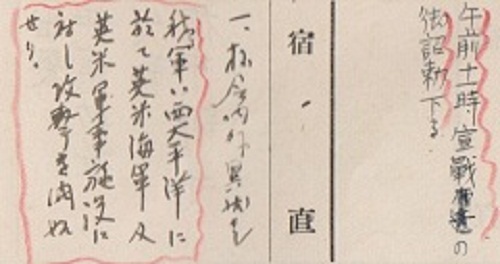 午前十一時宣戰の
御詔勅下る。
宿直
一、校舎内外異状なし
我軍ハ西太平洋に
於て英米海軍及
英米軍事施設に
対し攻撃を開始
せり。